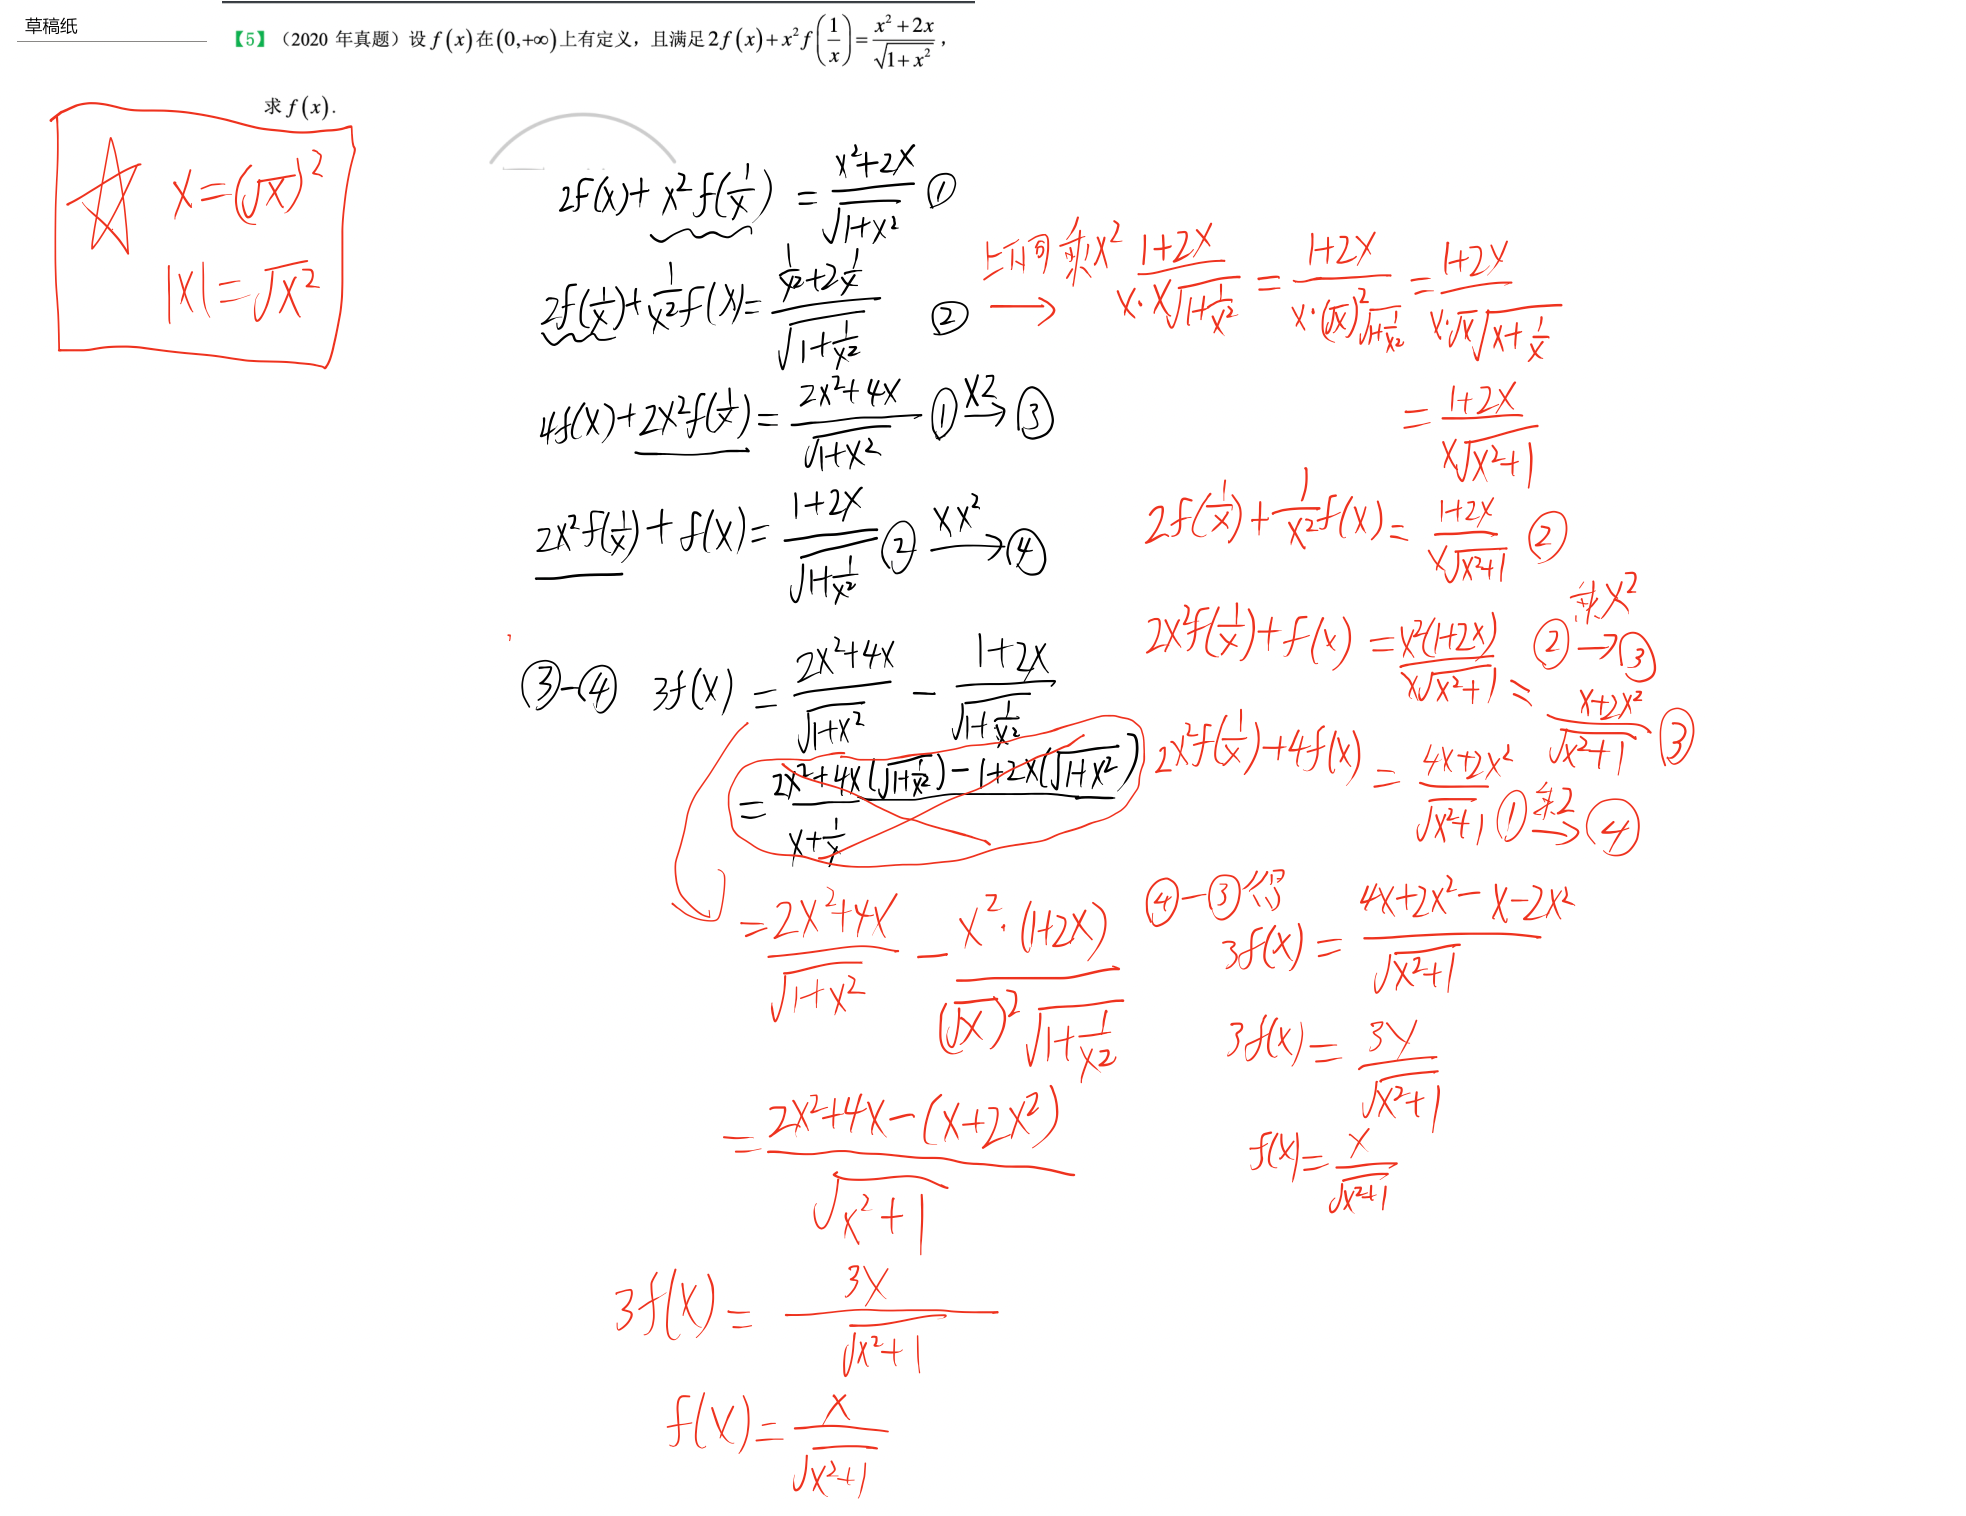 草稿纸
【5】（2020 年真题）设 f(x) 在 (0,+∞) 上有定义，且满足 2f(x)+x²f(1/x)=(x²+2x)/√(1+x²)，
求 f(x).
x=(√x)²
|x|=√x²
2f(x)+x²f(1/x)=(x²+2x)/√(1+x²) ①
2f(1/x)+1/x² f(x)=(1/x²+2 1/x)/√(1+1/x²) ②
4f(x)+2x²f(1/x)=(2x²+4x)/√(1+x²) ① ×2→ ③
2x²f(1/x)+f(x)=(1+2x)/√(1+1/x²) ② ×x²→ ④
③-④ 3f(x)=(2x²+4x)/√(1+x²) - (1+2x)/√(1+1/x²)
=(2x²+4x(√(1+1/x²))-1+2x(√(1+x²)))/(x+1/x)
=(2x²+4x)/√(1+x²) - x²·(1+2x)/((√x)²√(1+1/x²))
=(2x²+4x-(x+2x²))/√(x²+1)
3f(x)=3x/√(x²+1)
f(x)=x/√(x²+1)
上下同乘x² → (1+2x)/(x·x√(1+1/x²)) = (1+2x)/(x·(√x)²√(1+1/x²)) = (1+2x)/(x·√x√(x+1/x))
=(1+2x)/(x√(x²+1))
2f(1/x)+1/x² f(x)=(1+2x)/(x√(x²+1)) ②
2x²f(1/x)+f(x)=x²(1+2x)/(x√(x²+1)) = (x+2x²)/√(x²+1) ③ ② 乘x²→ ③
2x²f(1/x)+4f(x)=(4x+2x²)/√(x²+1) ① 乘2→ ④
④-③得
3f(x)=(4x+2x²-x-2x²)/√(x²+1)
3f(x)=3x/√(x²+1)
f(x)=x/√(x²+1)